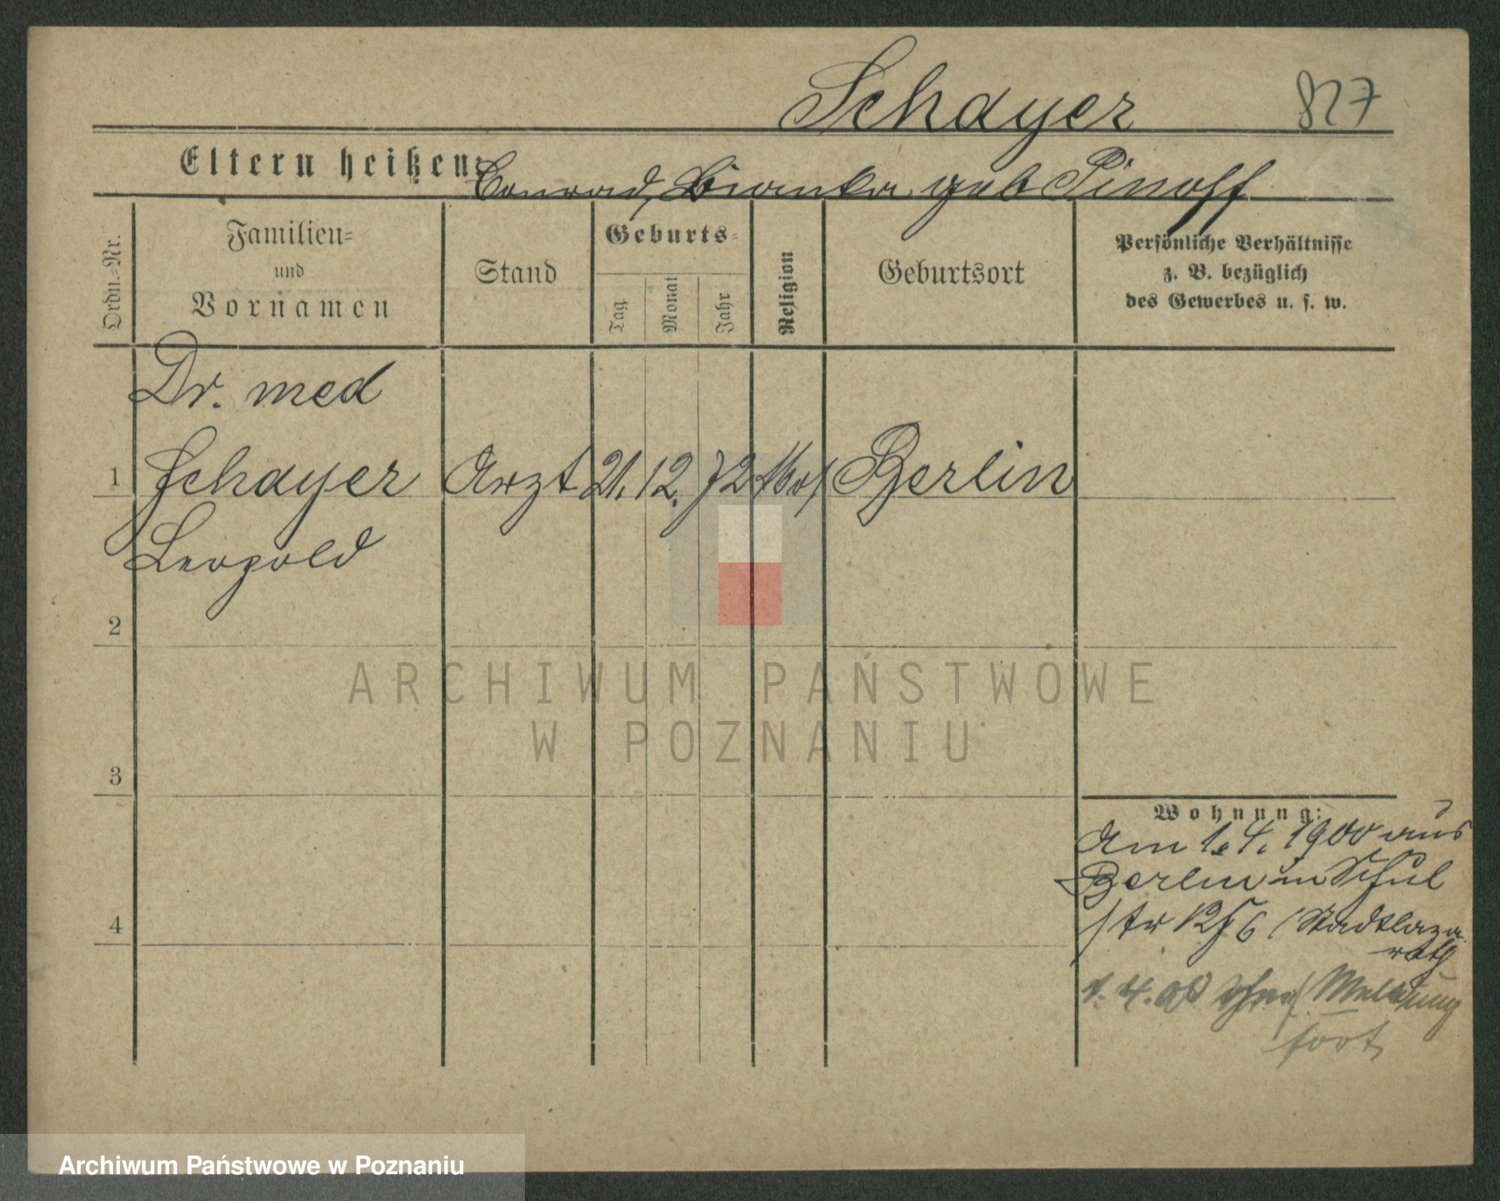 Schayer 827
Eltern heißen: Conrad, Bianka geb Pinoff
Ordn.-Nr.
Familien-
und
Vornamen
Stand
Geburts-
Tag
Monat
Jahr
Religion
Geburtsort
Persönliche Verhältnisse
z. B. bezüglich
des Gewerbes u. s. w.
Dr. med
1 Schayer Arzt 21. 12. 72 Berlin
Leopold
2
3
4
ARCHIWUM PAŃSTWOWE
W POZNANIU
Wohnung:
Am 1. 4. 1900 aus
Berlin in Schul
str (Stadtlaza
reth
1. 4. Meldung
fort
Archiwum Państwowe w Poznaniu